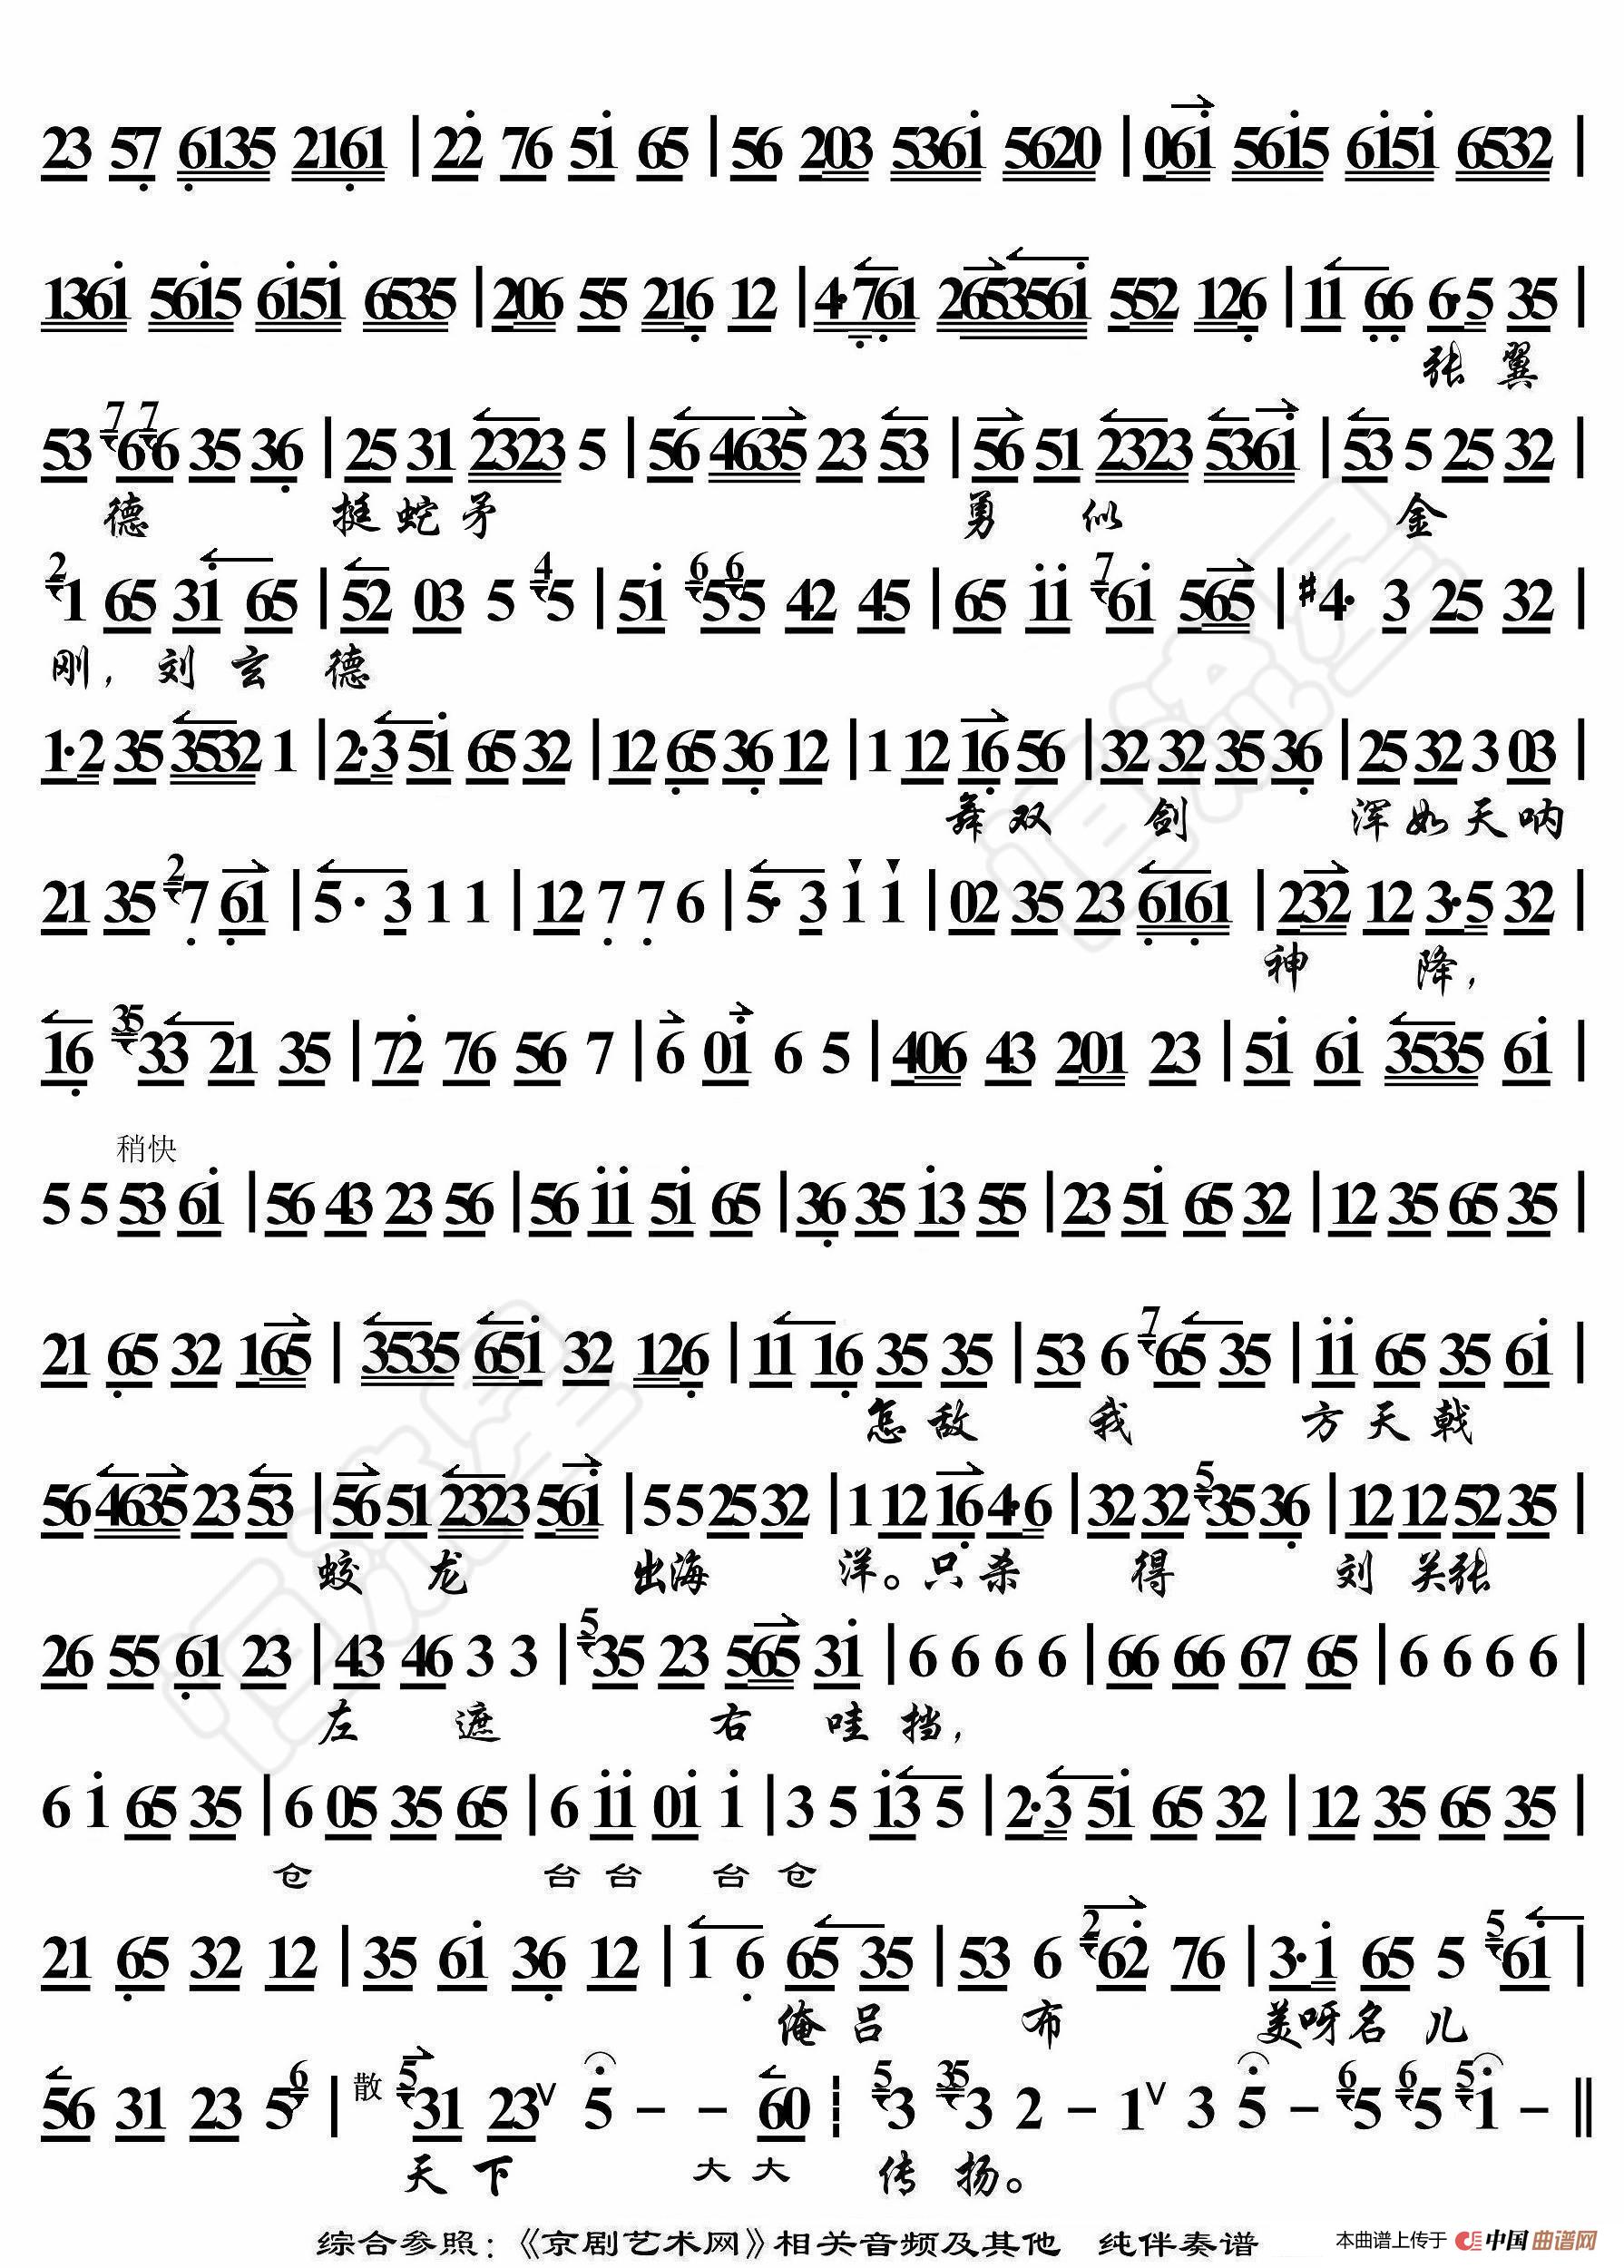 23 57 6135 2161 | 22 76 51 65 | 56 203 5361 5620 | 061 5615 6151 6532 |
1361 5615 6151 6535 | 206 55 216 12 | 4·761 2653561 552 126 | 11 66 6·5 35 |
张翼
53 7 6 7 6 35 36 | 25 31 2323 5 | 56 4635 23 53 | 56 51 2323 5361 | 53 5 25 32 |
德 挺蛇矛 勇似 金
2 1 65 31 65 | 52 03 5 4 5 | 51 6 5 6 5 42 45 | 65 11 7 61 565 | #4· 3 25 32 |
刚,刘玄德
1·2 35 3532 1 | 2·3 51 65 32 | 12 65 36 12 | 1 12 16 56 | 32 32 35 36 | 25 32 3 03 |
舞双 剑 浑如天呐
21 35 2 7 61 | 5· 3 1 1 | 12 7 7 6 | 5· 3 1 1 | 02 35 23 6161 | 232 12 3·5 32 |
神 降,
16 35 33 21 35 | 72 76 56 7 | 6 01 6 5 | 406 43 201 23 | 51 61 3535 61 |
稍快
5 5 53 61 | 56 43 23 56 | 56 11 51 65 | 36 35 13 55 | 23 51 65 32 | 12 35 65 35 |
21 65 32 165 | 3535 651 32 126 | 11 16 35 35 | 53 6 7 65 35 | 11 65 35 61 |
怎敌 我 方天戟
56 4635 23 53 | 56 51 2323 561 | 5 5 25 32 | 1 12 16 4·6 | 32 32 5 35 36 | 12 12 52 35 |
蛟 龙 出海 洋。只杀 得 刘关张
26 55 61 23 | 43 46 3 3 | 5 35 23 565 31 | 6 6 6 6 | 66 66 67 65 | 6 6 6 6 |
左 遮 右 哇挡,
6 1 65 35 | 6 05 35 65 | 6 11 01 1 | 3 5 13 5 | 2·3 51 65 32 | 12 35 65 35 |
仓 台台 台仓
21 65 32 12 | 35 61 36 12 | 1 6 65 35 | 53 6 2 62 76 | 3·1 65 5 5 61 |
俺吕 布 美呀名儿
56 31 23 5 6 | 散 5 31 23 V 5 - - 60 ┆ 5 3 35 3 2 - 1 V 3 5 - 6 5 6 5 5 1 - ‖
天下 大大 传扬。
综合参照:《京剧艺术网》相关音频及其他 纯伴奏谱
本曲谱上传于 中国曲谱网